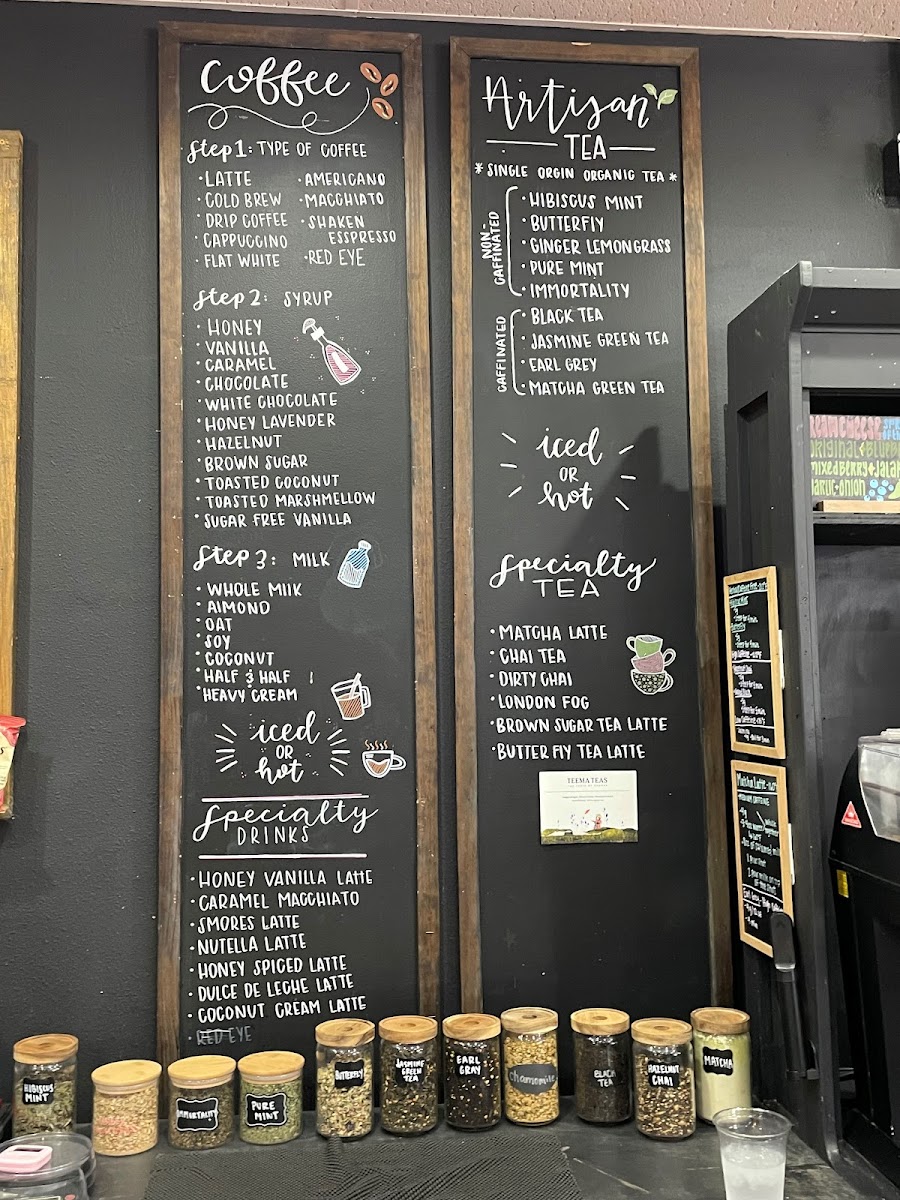 Coffee
Step 1: TYPE OF COFFEE
• LATTE
• COLD BREW
• DRIP COFFEE
• CAPPUCCINO
• FLAT WHITE
• AMERICANO
• MACCHIATO
• SHAKEN
ESSPRESSO
• RED EYE
Step 2: SYRUP
• HONEY
• VANILLA
• CARAMEL
• CHOCOLATE
• WHITE CHOCOLATE
• HONEY LAVENDER
• HAZELNUT
• BROWN SUGAR
• TOASTED COCONUT
• TOASTED MARSHMELLOW
• SUGAR FREE VANILLA
Step 3: MILK
• WHOLE MILK
• ALMOND
• OAT
• SOY
• COCONUT
• HALF & HALF
• HEAVY CREAM
iced
OR
hot
Specialty
DRINKS
• HONEY VANILLA LATTE
• CARAMEL MACCHIATO
• SMORES LATTE
• NUTELLA LATTE
• HONEY SPICED LATTE
• DULCE DE LECHE LATTE
• COCONUT CREAM LATTE
• RED EYE
Artisan
TEA
* SINGLE ORGIN ORGANIC TEA *
NON-
CAFFINATED
• HIBISCUS MINT
• BUTTERFLY
• GINGER LEMONGRASS
• PURE MINT
• IMMORTALITY
CAFFINATED
• BLACK TEA
• JASMINE GREEN TEA
• EARL GREY
• MATCHA GREEN TEA
iced
OR
hot
Specialty
TEA
• MATCHA LATTE
• CHAI TEA
• DIRTY CHAI
• LONDON FOG
• BROWN SUGAR TEA LATTE
• BUTTER FLY TEA LATTE
TEEMA TEAS
ORIGINAL
MIXED BERRY
ONION
HIBISCUS
MINT
IMMORTALITY
PURE
MINT
BUTTERFLY
JASMINE
GREEN
TEA
EARL
GRAY
chamomile
BLACK
TEA
HAZELNUT
CHAI
MATCHA